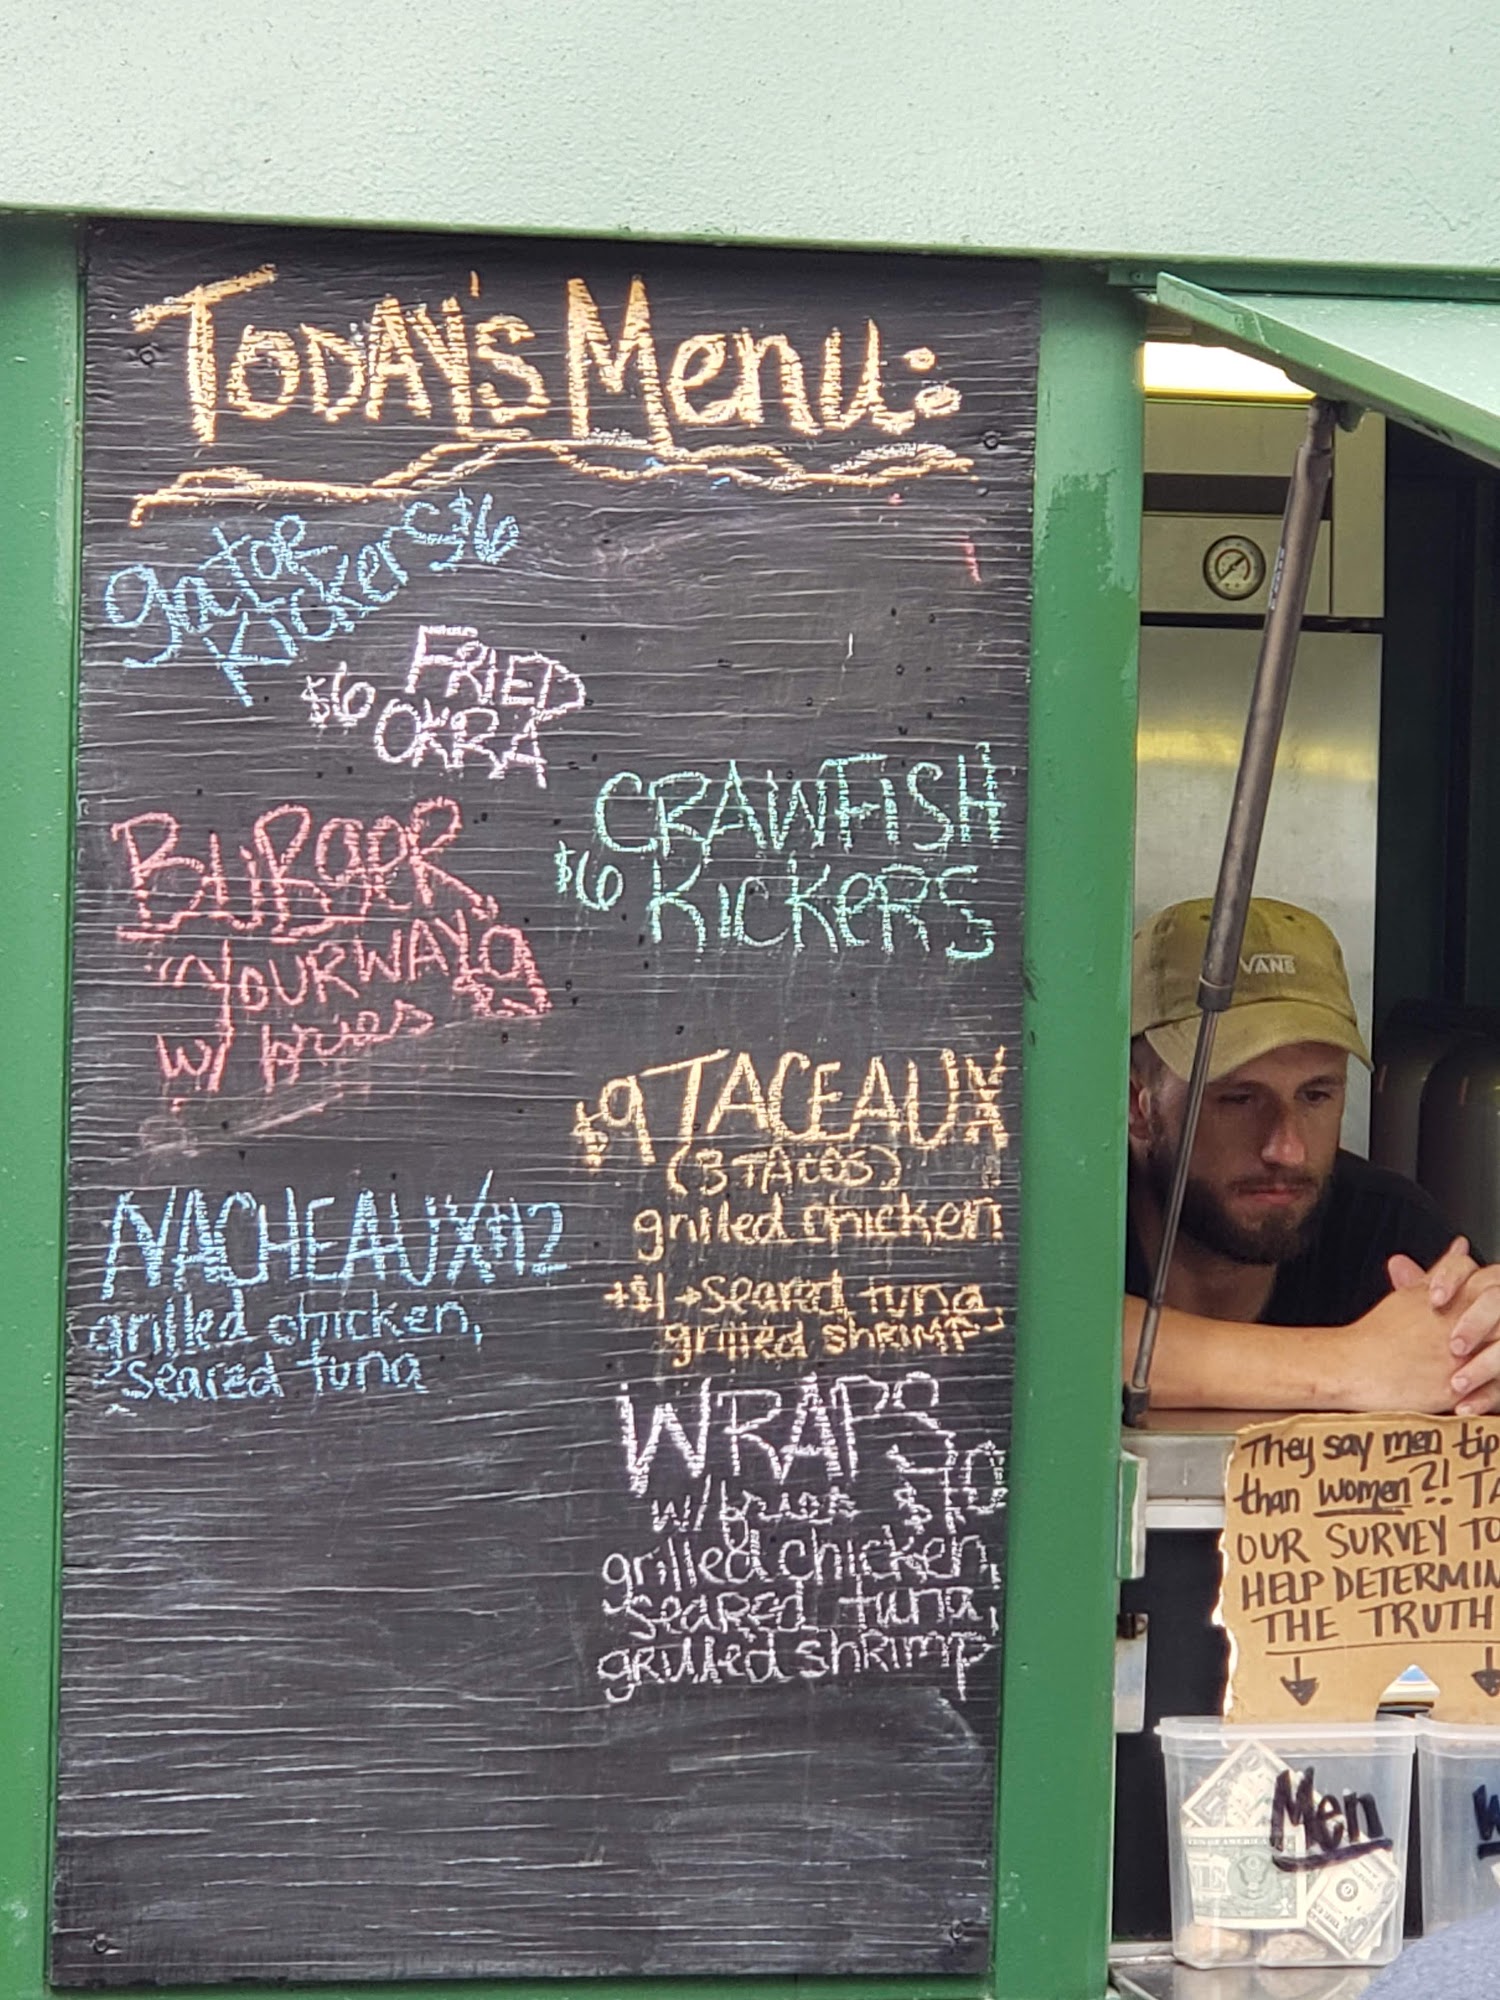 TODAY'S Menu:
gator $6
Kickers
FRIED
$6 OKRA
CRAWFISH
$6 KicKeRS
BURGER
"YOUR WAY" $9
w/ fries
$9 TACEAUX
(3 TACOS)
grilled chicken
+$1 → seared tuna,
grilled shrimp
NACHEAUX $12
grilled chicken,
seared tuna
WRAPS
w/ fries $10
grilled chicken,
seared tuna,
grilled shrimp
VANS
They say men tip
than women?! TA
OUR SURVEY TO
HELP DETERMIN
THE TRUTH
Men
W